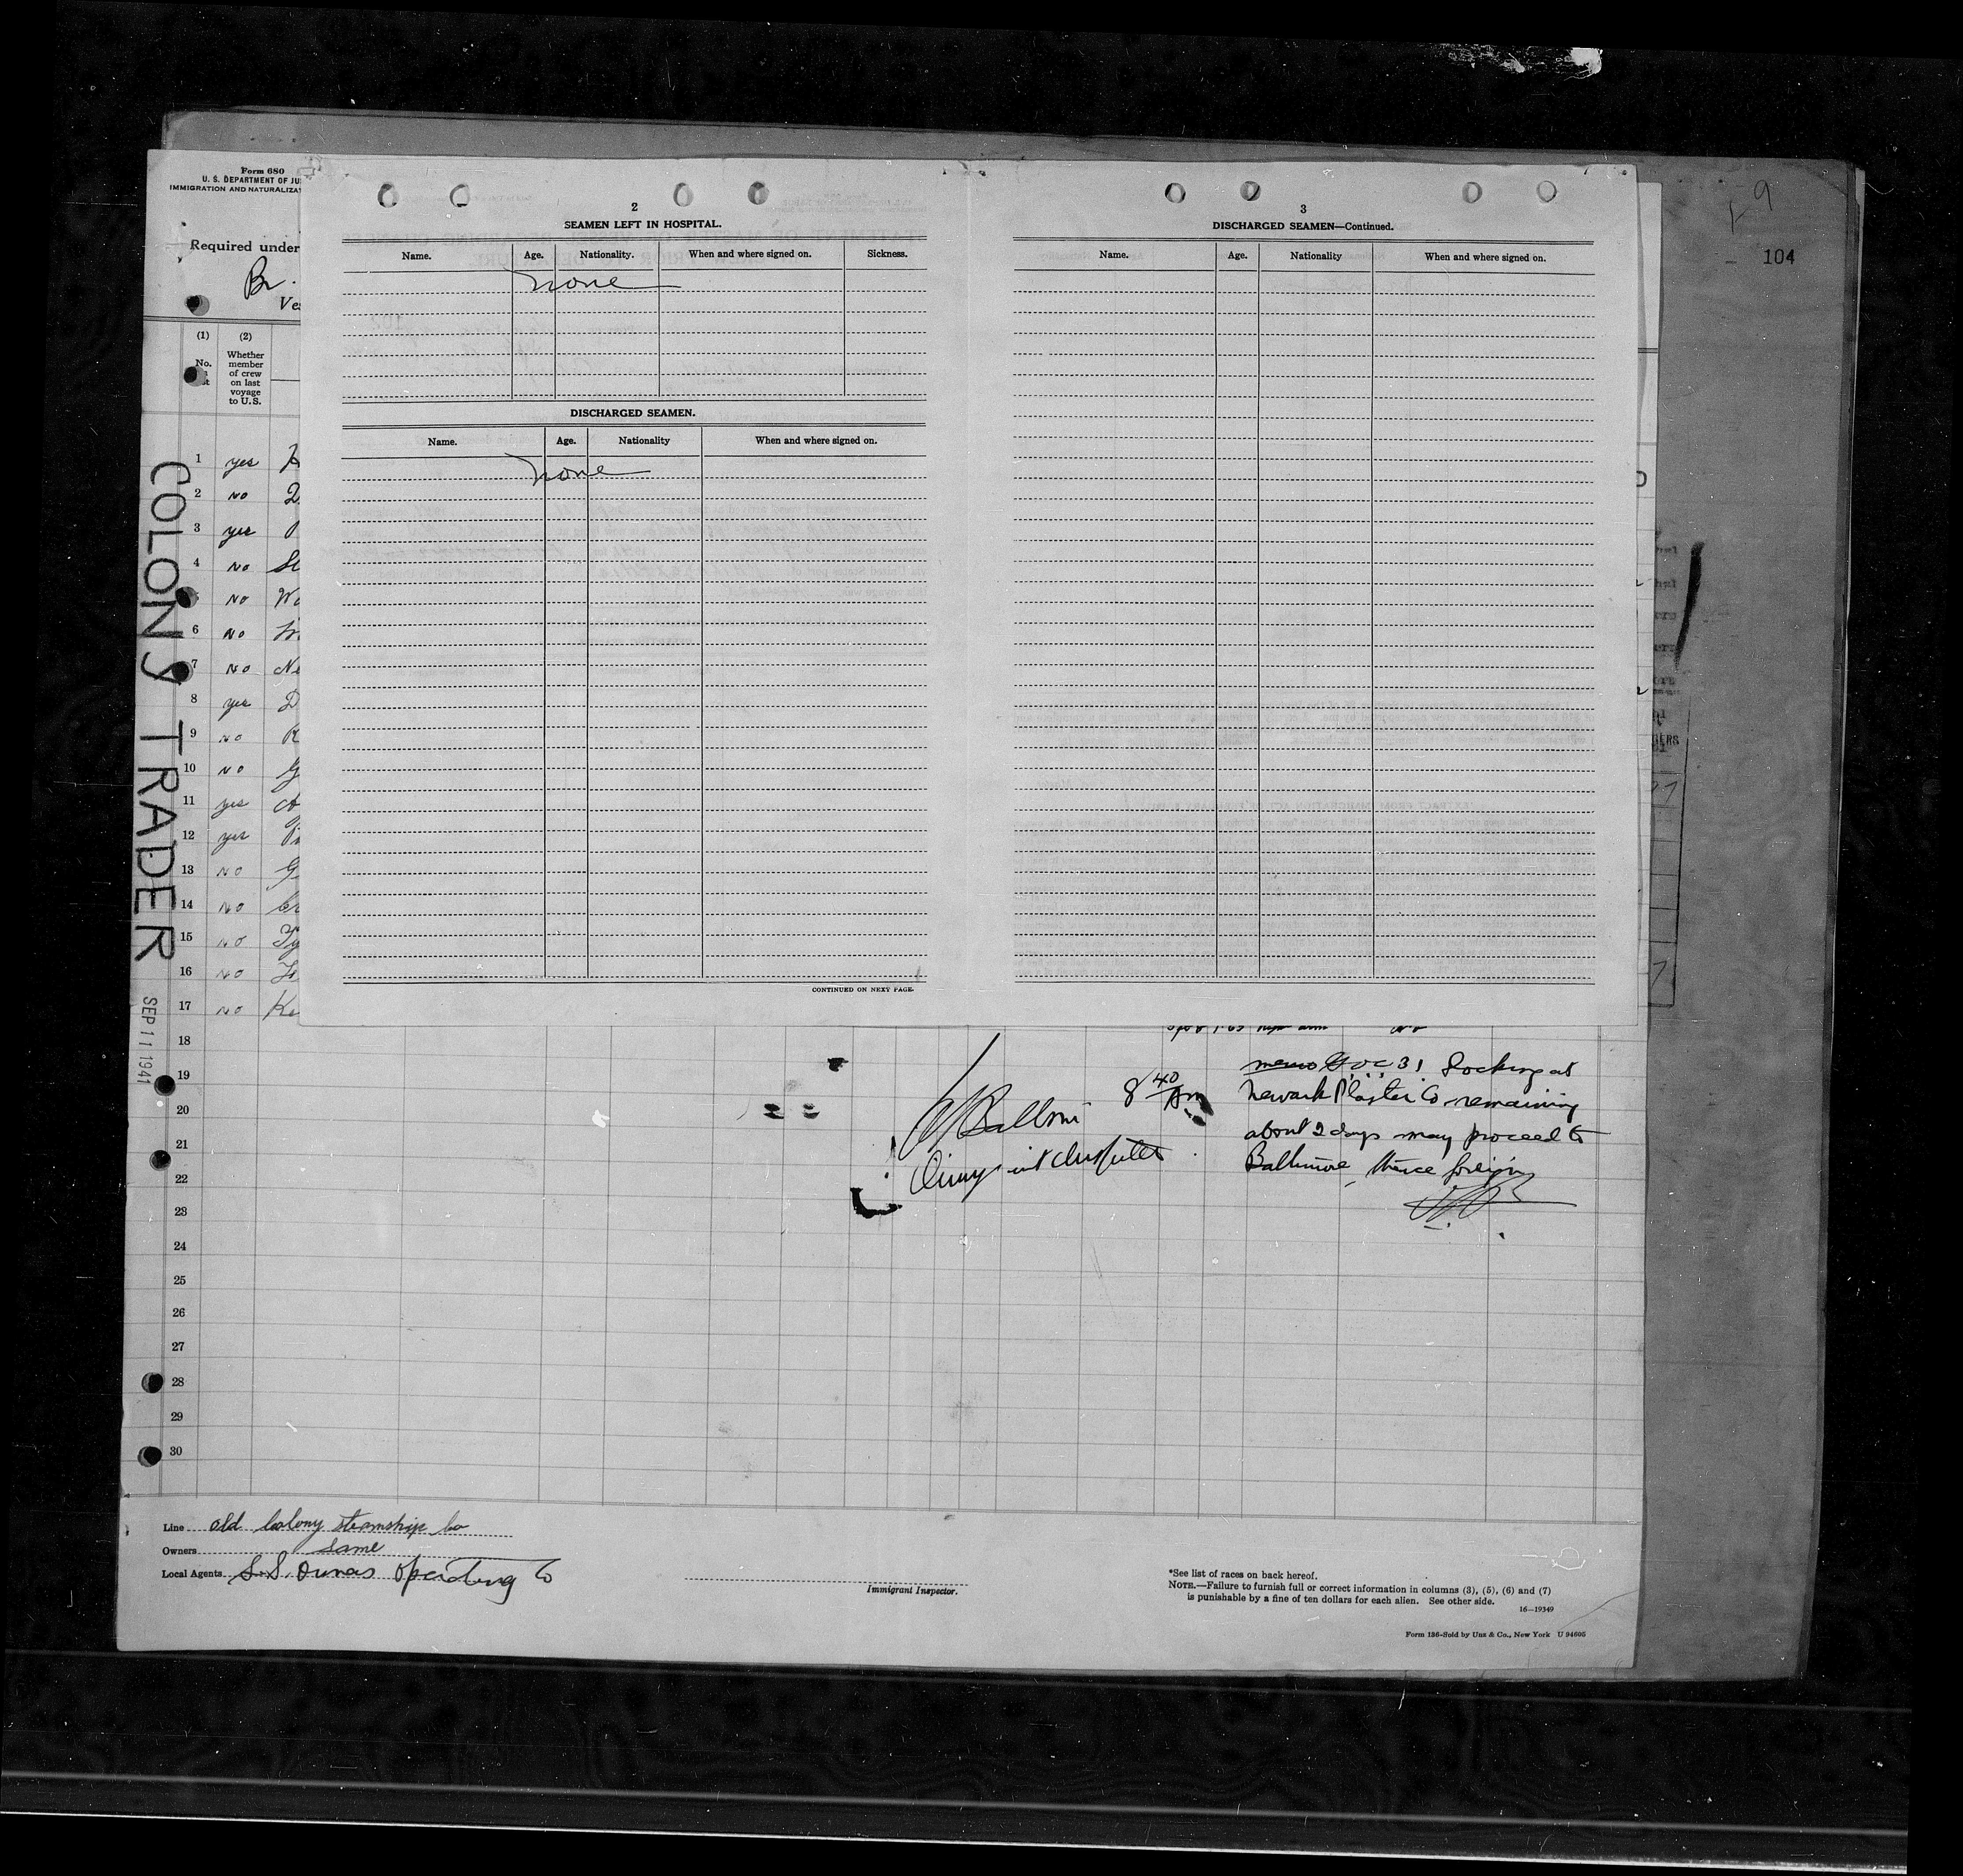 104
Form 680
U. S. DEPARTMENT OF JU
IMMIGRATION AND NATURALIZA
Required under
Br.
Ve
(1)
(2)
No.
Whether
member
of crew
on last
voyage
to U. S.
1 yes
2 no
3 yes
4 no
no
6 no
7 no
8 yes
9 no
10 no
11 yes
12 yes
13 no
14 no
15 no
16 no
17 no
18
19
20
21
22
23
24
25
26
27
28
29
30
COLONY TRADER
SEP 11 1941
2
SEAMEN LEFT IN HOSPITAL.
Name. Age. Nationality. When and where signed on. Sickness.
none
DISCHARGED SEAMEN.
Name. Age. Nationality When and where signed on.
none
CONTINUED ON NEXT PAGE.
3
DISCHARGED SEAMEN—Continued.
Name. Age. Nationality When and where signed on.
8 40 Am
31 Docking at
Newark Plaster Co remaining
about 2 days may proceed to
Baltimore, thence foreign
Line old Colony steamship Co
Owners same
Local Agents S.S. Operating Co
Immigrant Inspector.
*See list of races on back hereof.
NOTE.—Failure to furnish full or correct information in columns (3), (5), (6) and (7)
is punishable by a fine of ten dollars for each alien. See other side.
16—19349
Form 136-Sold by Unz & Co., New York U 94605